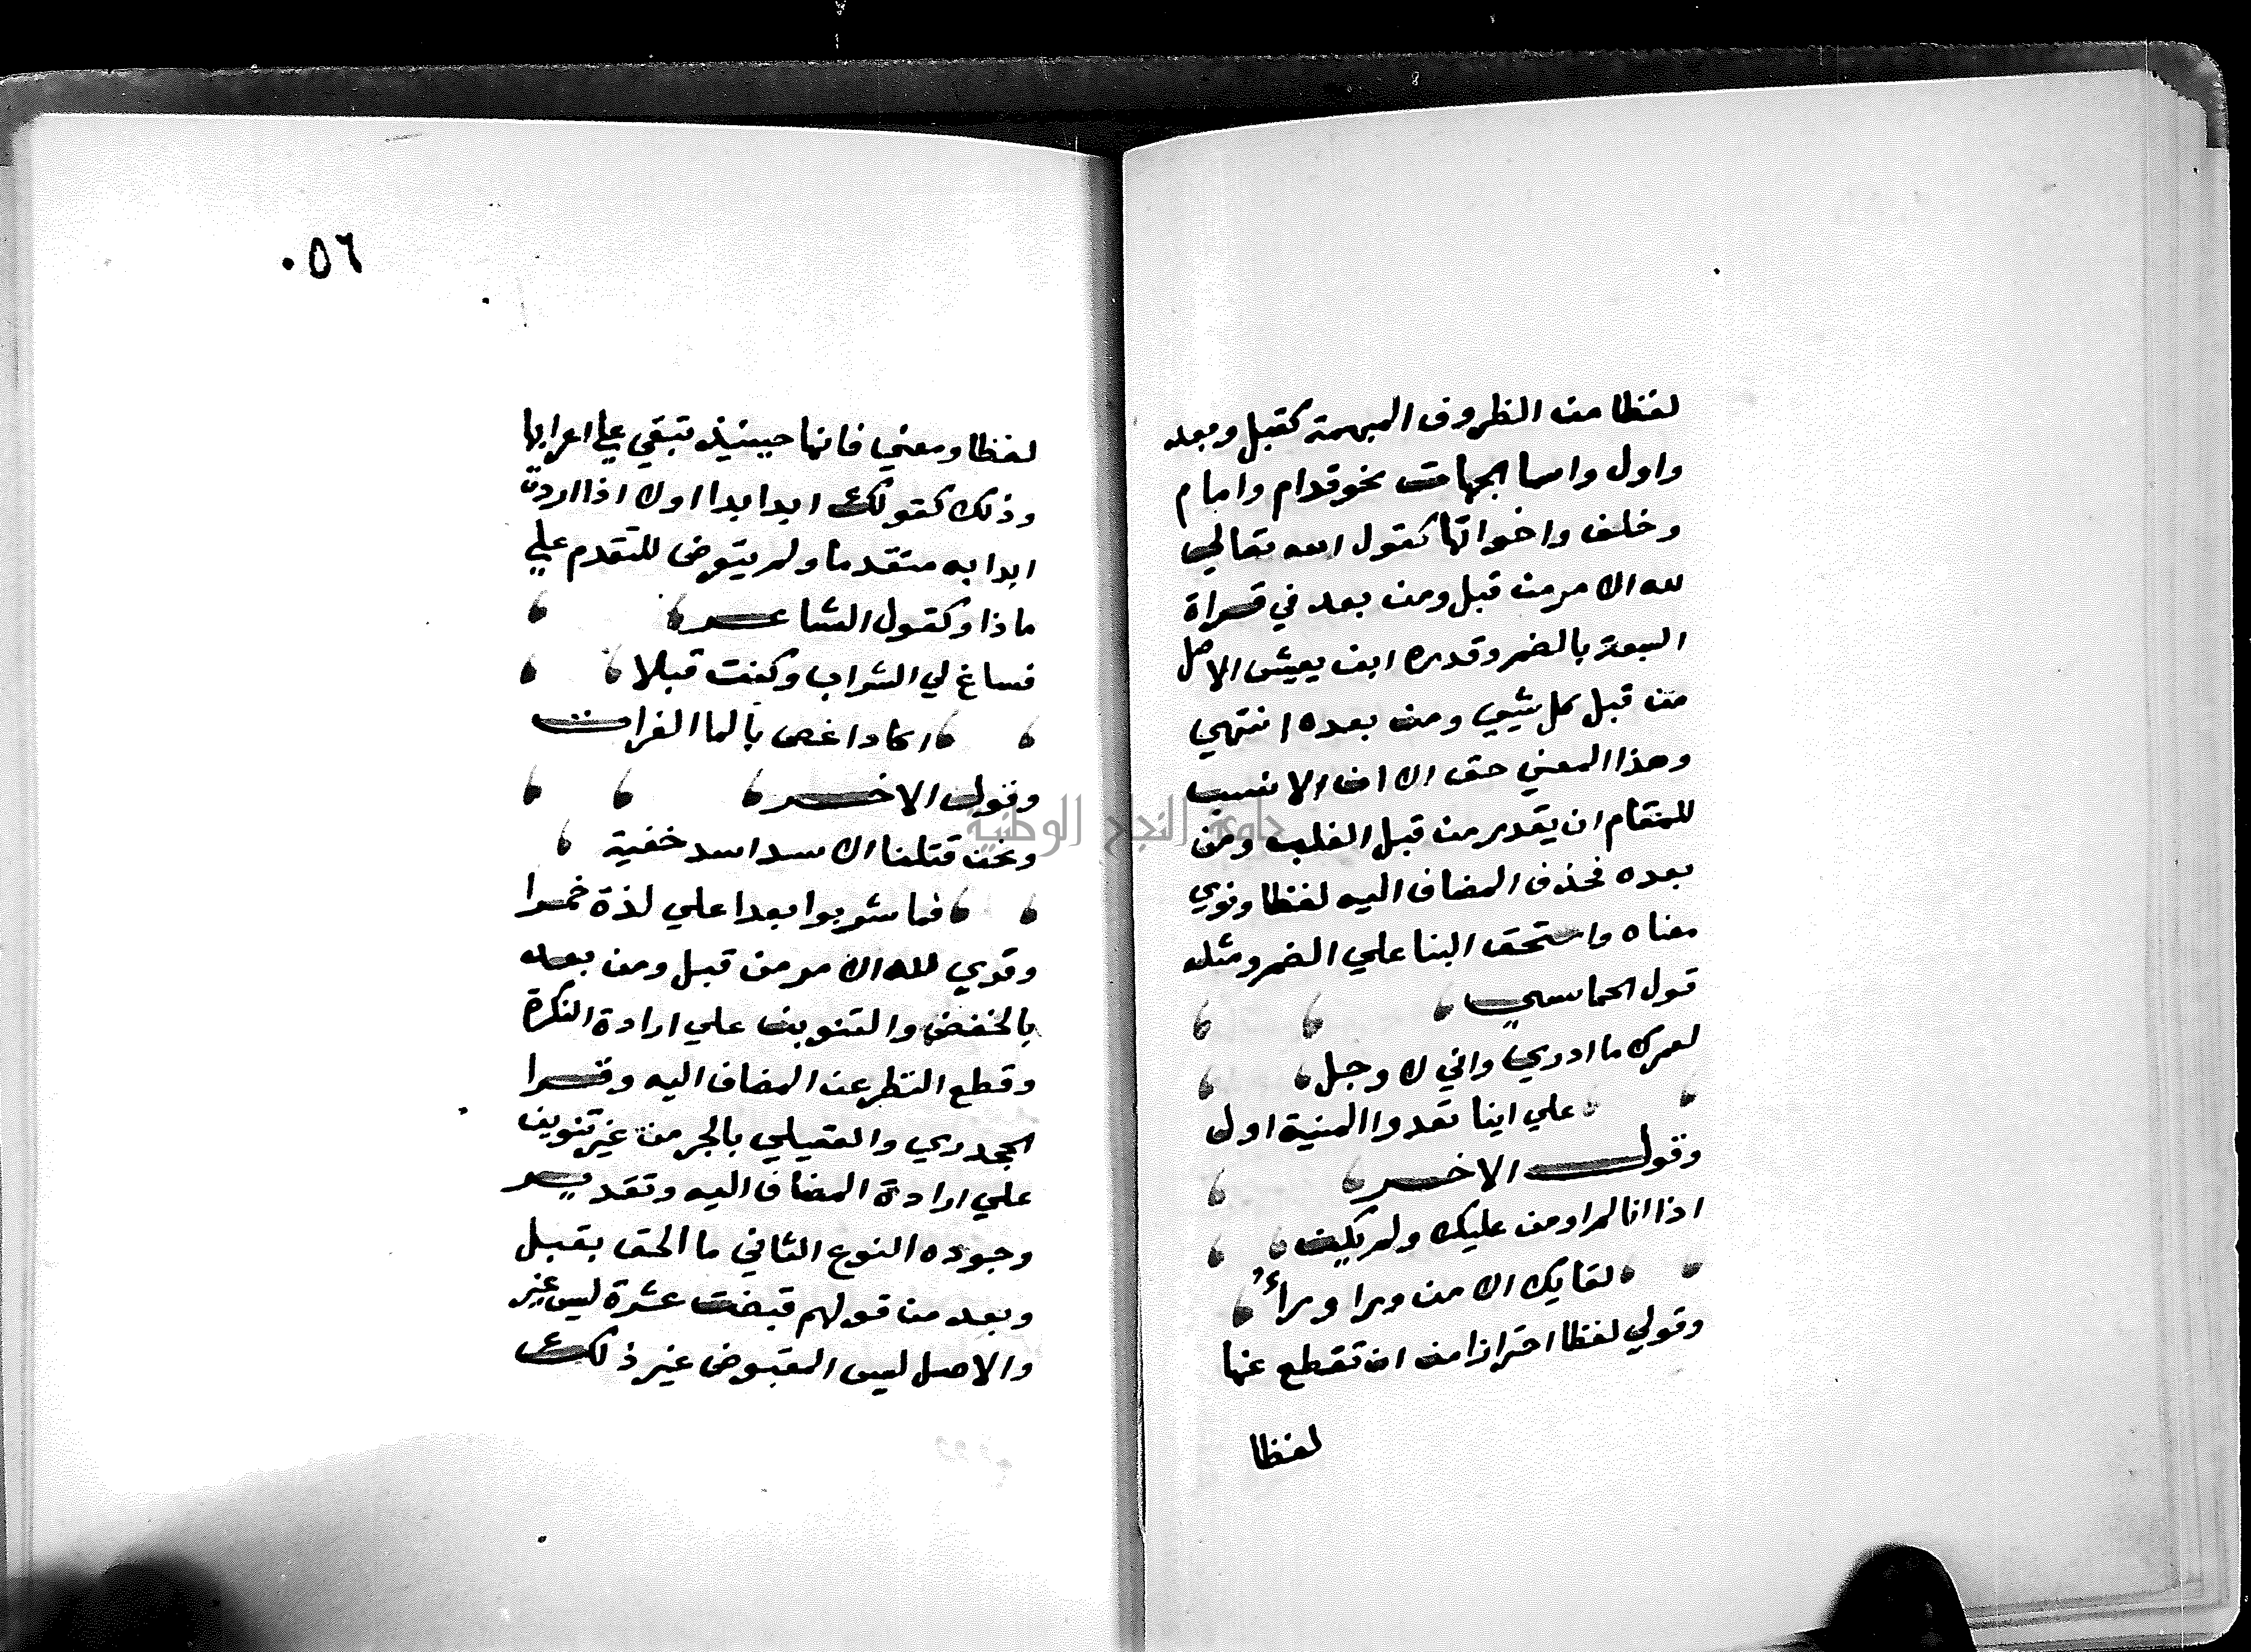 لفظا من الظروف المبهمة كقبل وبعد
واول واسما الجهات نحو قدام وامام
وخلف واخواتها كقول الله تعالي
لله الامر من قبل ومن بعد في قراة
السبعة بالضم وقدره ابن يعيش الاصل
من قبل كل شيي ومن بعده انتهي
وهذا المعني حق الا ان الانسب
للمقام ان يقدر من قبل الغلب ومن
بعده فحذف المضاف اليه لفظا ونوي
معناه واستحق البنا علي الضم ومثله
قول الحماسي
لعمرك ما ادري واني لاوجل
علي اينا تعدوا المنية اول
وقول الاخر
اذا انا لم اومن عليك ولم يكن
لقايك الا من ورا وراءُ
وقولي لفظا احترازا من ان تقطع عنها
لفظا
٠٥٦
لفظا ومعني فانها حينيذ تبقي علي اعرابها
وذلك كقولك ابدا بدا اولا اذا اردت
ابدا به متقدما ولم يتعرض للتقدم علي
ماذا وكقول الشاعر
فساغ لي الشراب وكنت قبلا
اكاد اغص بالما الفرات
وقول الاخر
ونحن قتلنا الاسد اسد خفية
فما شربوا بعدا علي لذة خمرا
وقري لله الامر من قبل ومن بعد
بالخفض والتنوين علي ارادة النكرة
وقطع النظر عن المضاف اليه وقرا
الجحدري والعقيلي بالجر من غير تنوين
علي ارادة المضاف اليه وتقدير
وجوده النوع الثاني ما الحق بقبل
وبعد من قولهم قبضت عشرة ليس غير
والاصل ليس المقبوض غير ذلك
جامعة النجاح الوطنية